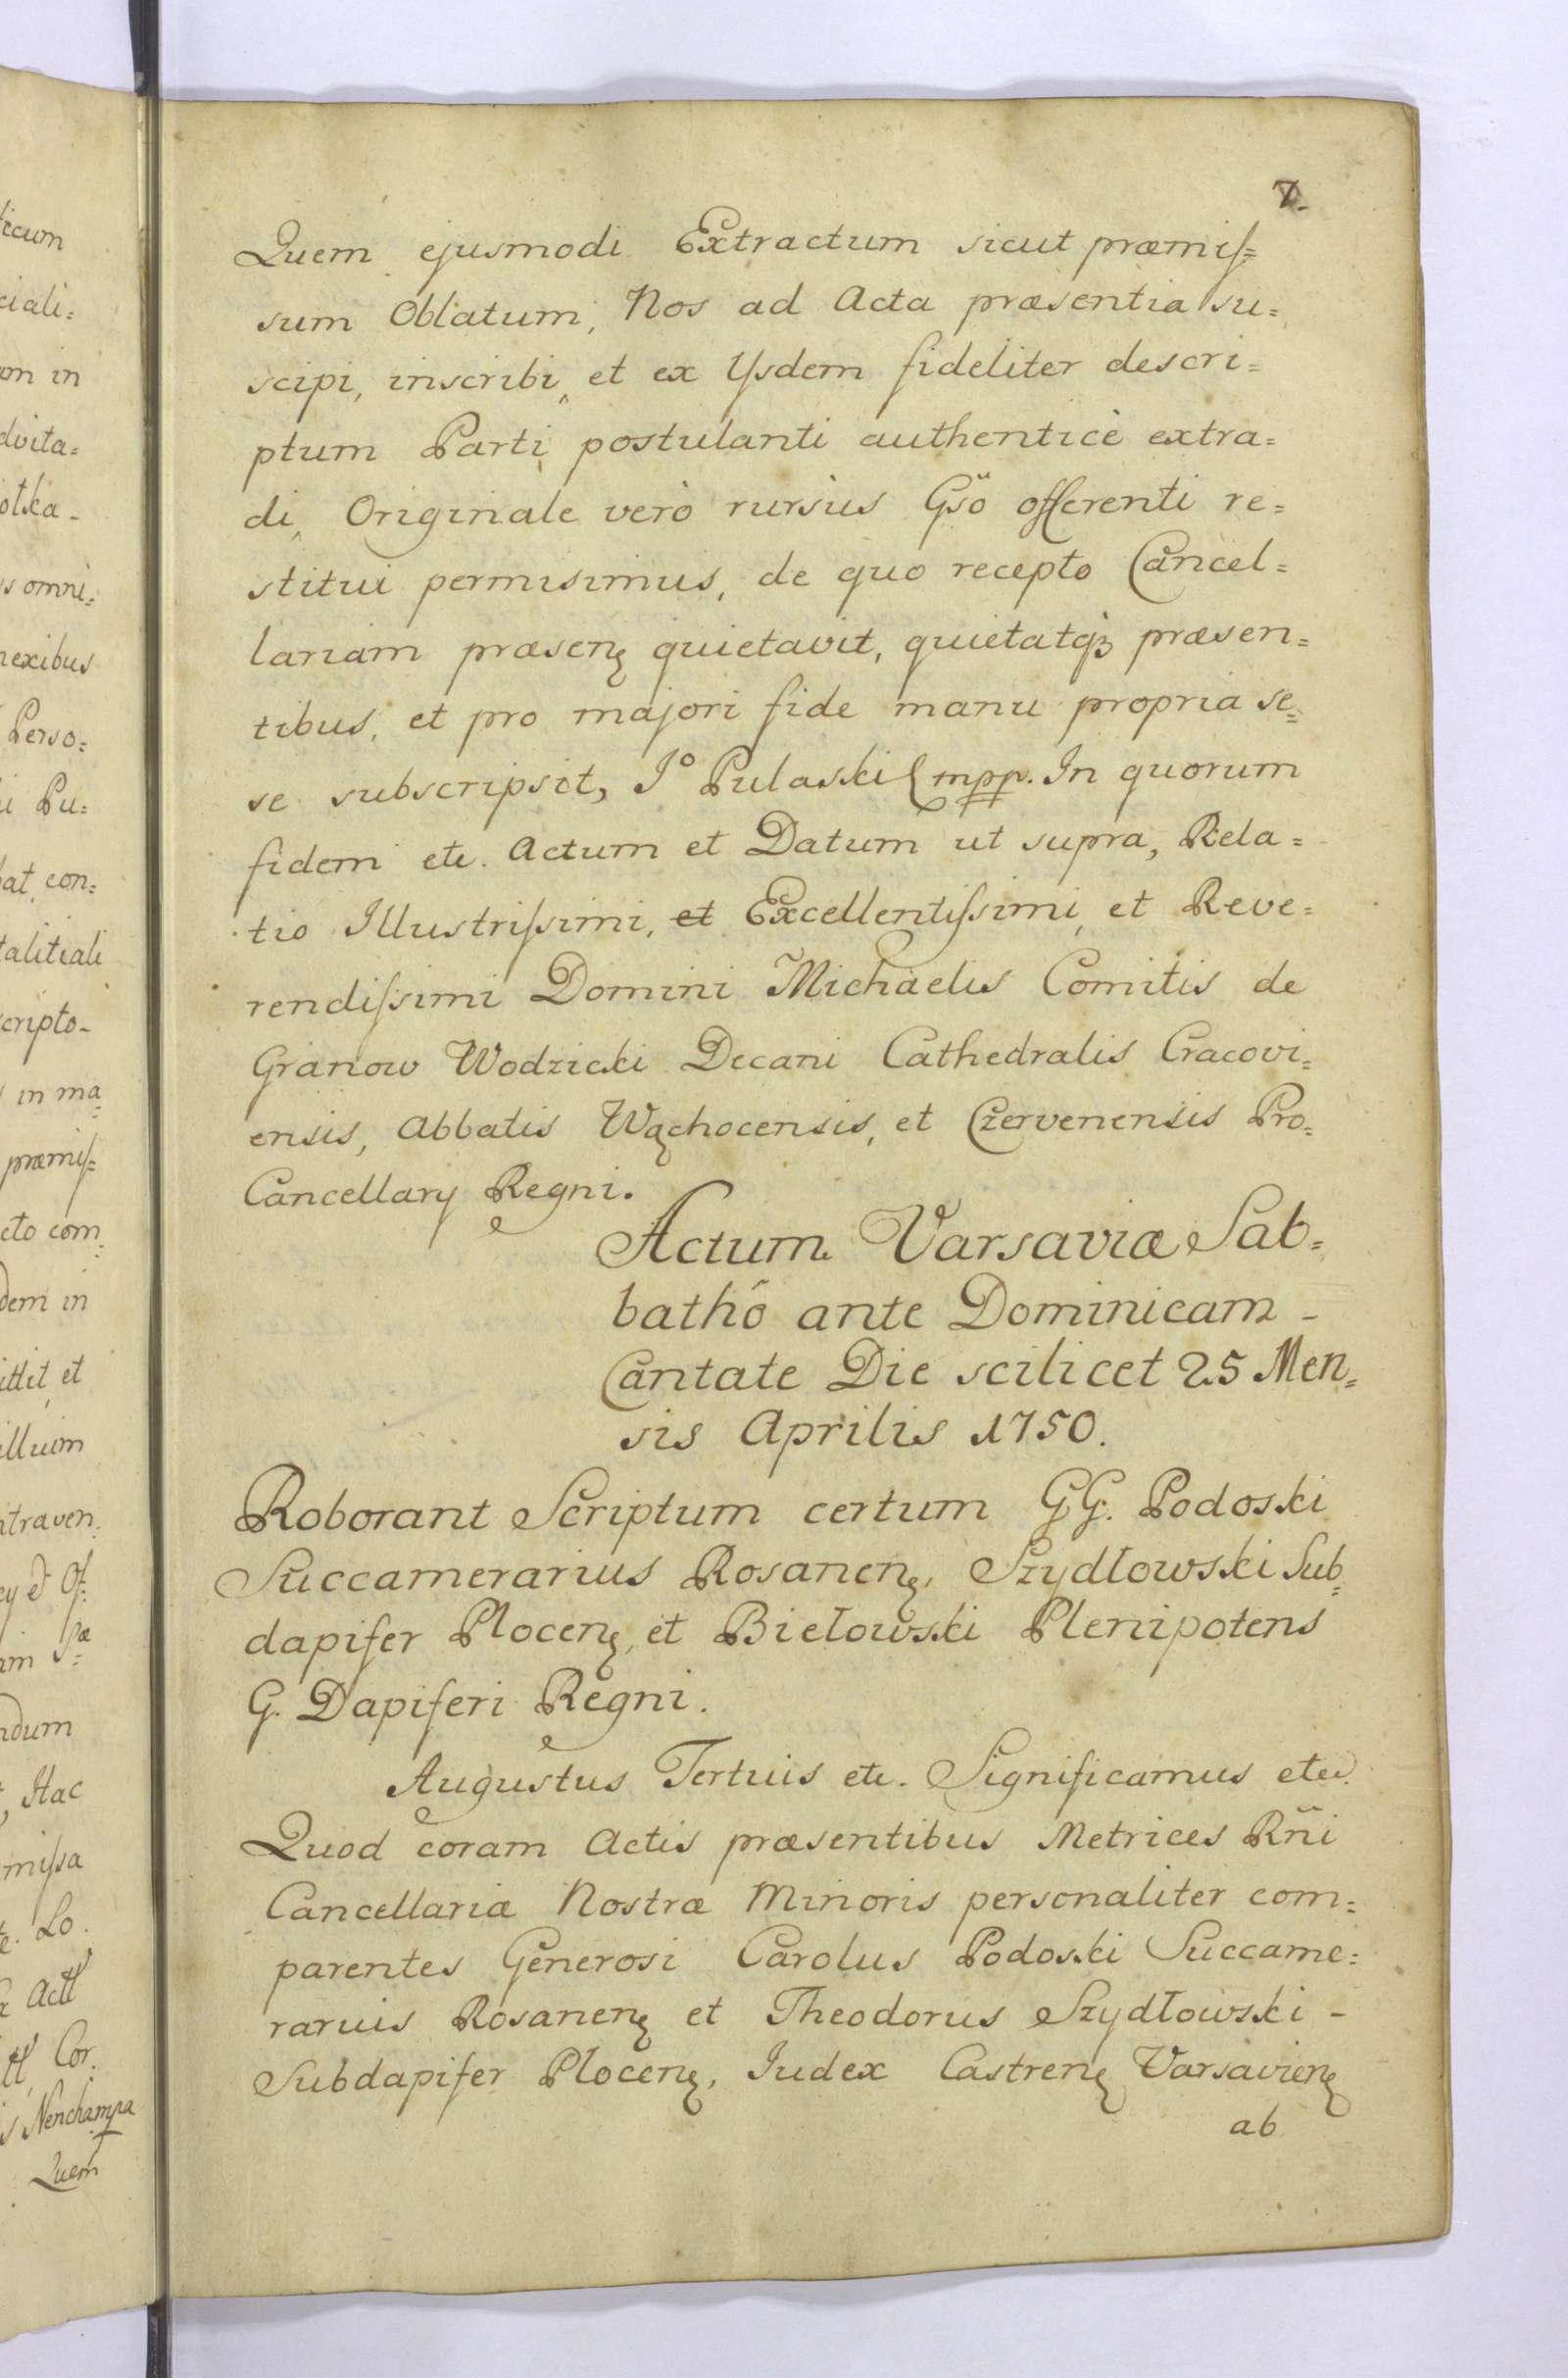 7.
Quem ejusmodi Extractum sicut præmis=
sum Oblatum, Nos ad Acta præsentia su=
scipi, inscribi, et ex Ysdem fideliter descri=
ptum Parti postulanti authenticè extra=
di, Originale verò rursùs Gsö offerenti re=
stitui permisimus, de quo recepto Cancel=
lariam præsenę quietavit, quietatqȝ præsen=
tibus, et pro majori fide manu propria se=
se subscripsit, Jº Pulaski mpp. In quorum
fidem etc. Actum et Datum ut supra, Rela=
tio Illustrissimi, et Excellentissimi, et Reve=
rendissimi Domini Michaelis Comitis de
Granow Wodzicki Decani Cathedralis Cracovi=
ensis, Abbatis Wąchocensis, et Czervenensis Pro=
Cancellary Regni.
Actum Varsaviæ Sab=
bathô ante Dominicam -
Cantate Die scilicet 25 Men=
sis Aprilis 1750.
Roborant Scriptum certum GG. Podoski
Succamerarius Rosanenę, Szydłowski Sub=
dapifer Plocenę, et Biełowski Plenipotens
G. Dapiferi Regni.
Augustus Tertius etc. Significamus etc.
Quod coram Actis præsentibus Metrices Rñi
Cancellariæ Nostræ Minoris personaliter com=
parentes Generosi Carolus Podoski Succame=
rarius Rosanenę et Theodorus Szydłowski -
Subdapifer Plocenę, Iudex Castrenę Varsavienę
ab